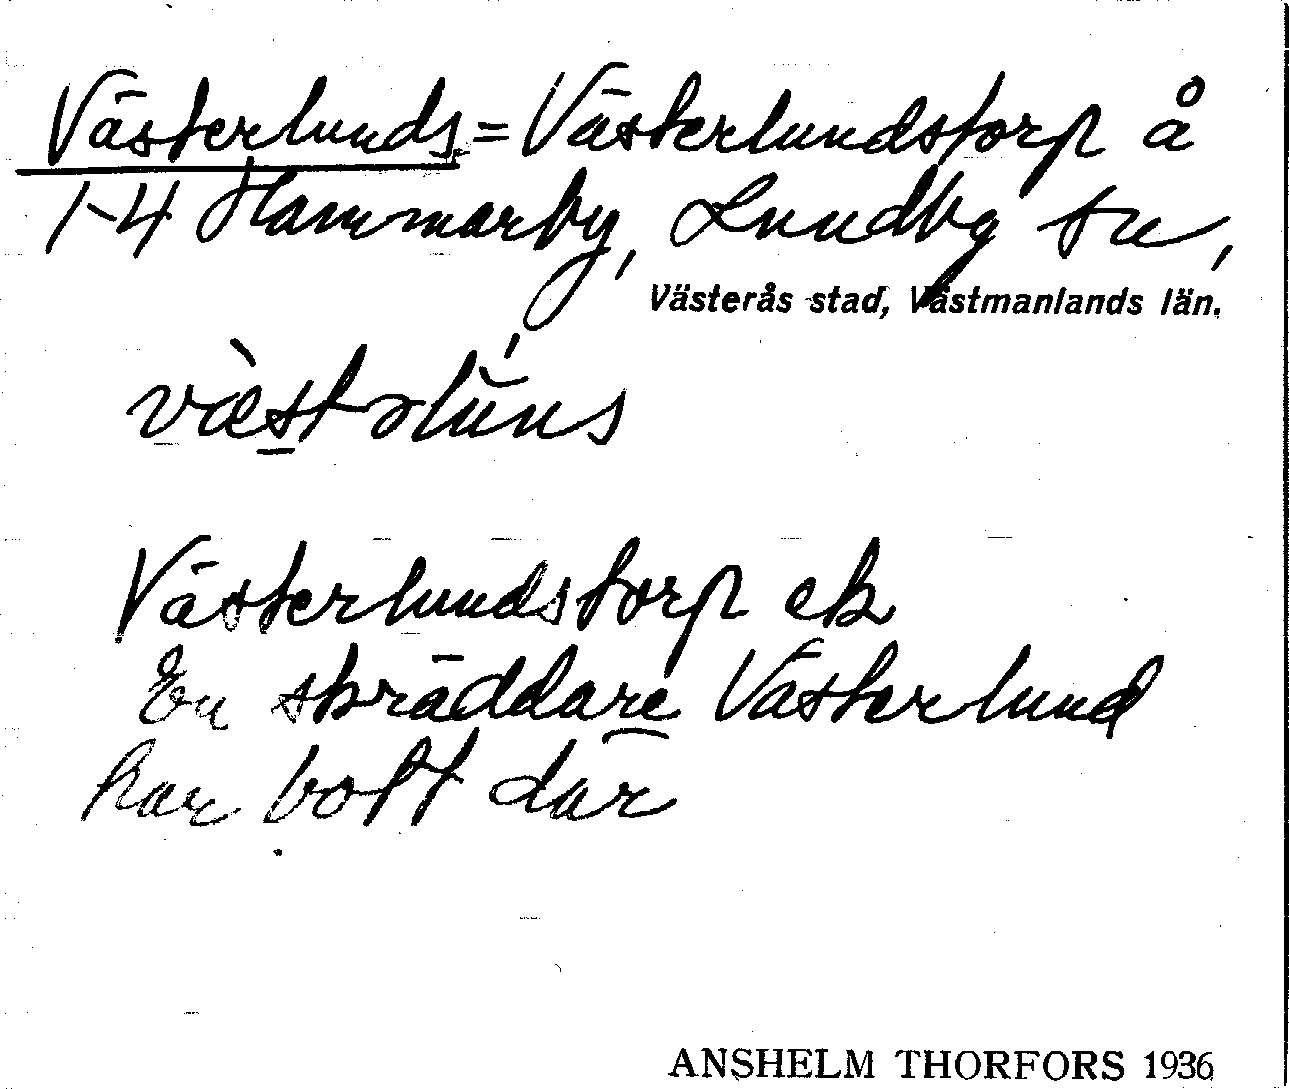 Västerlunds = Västerlundstorp å
1-4 Hammarby, Lundby sn,
Västerås stad, Västmanlands län.
Västerlundstorp ek
En skräddare Västerlund
har bott där
ANSHELM THORFORS 1936